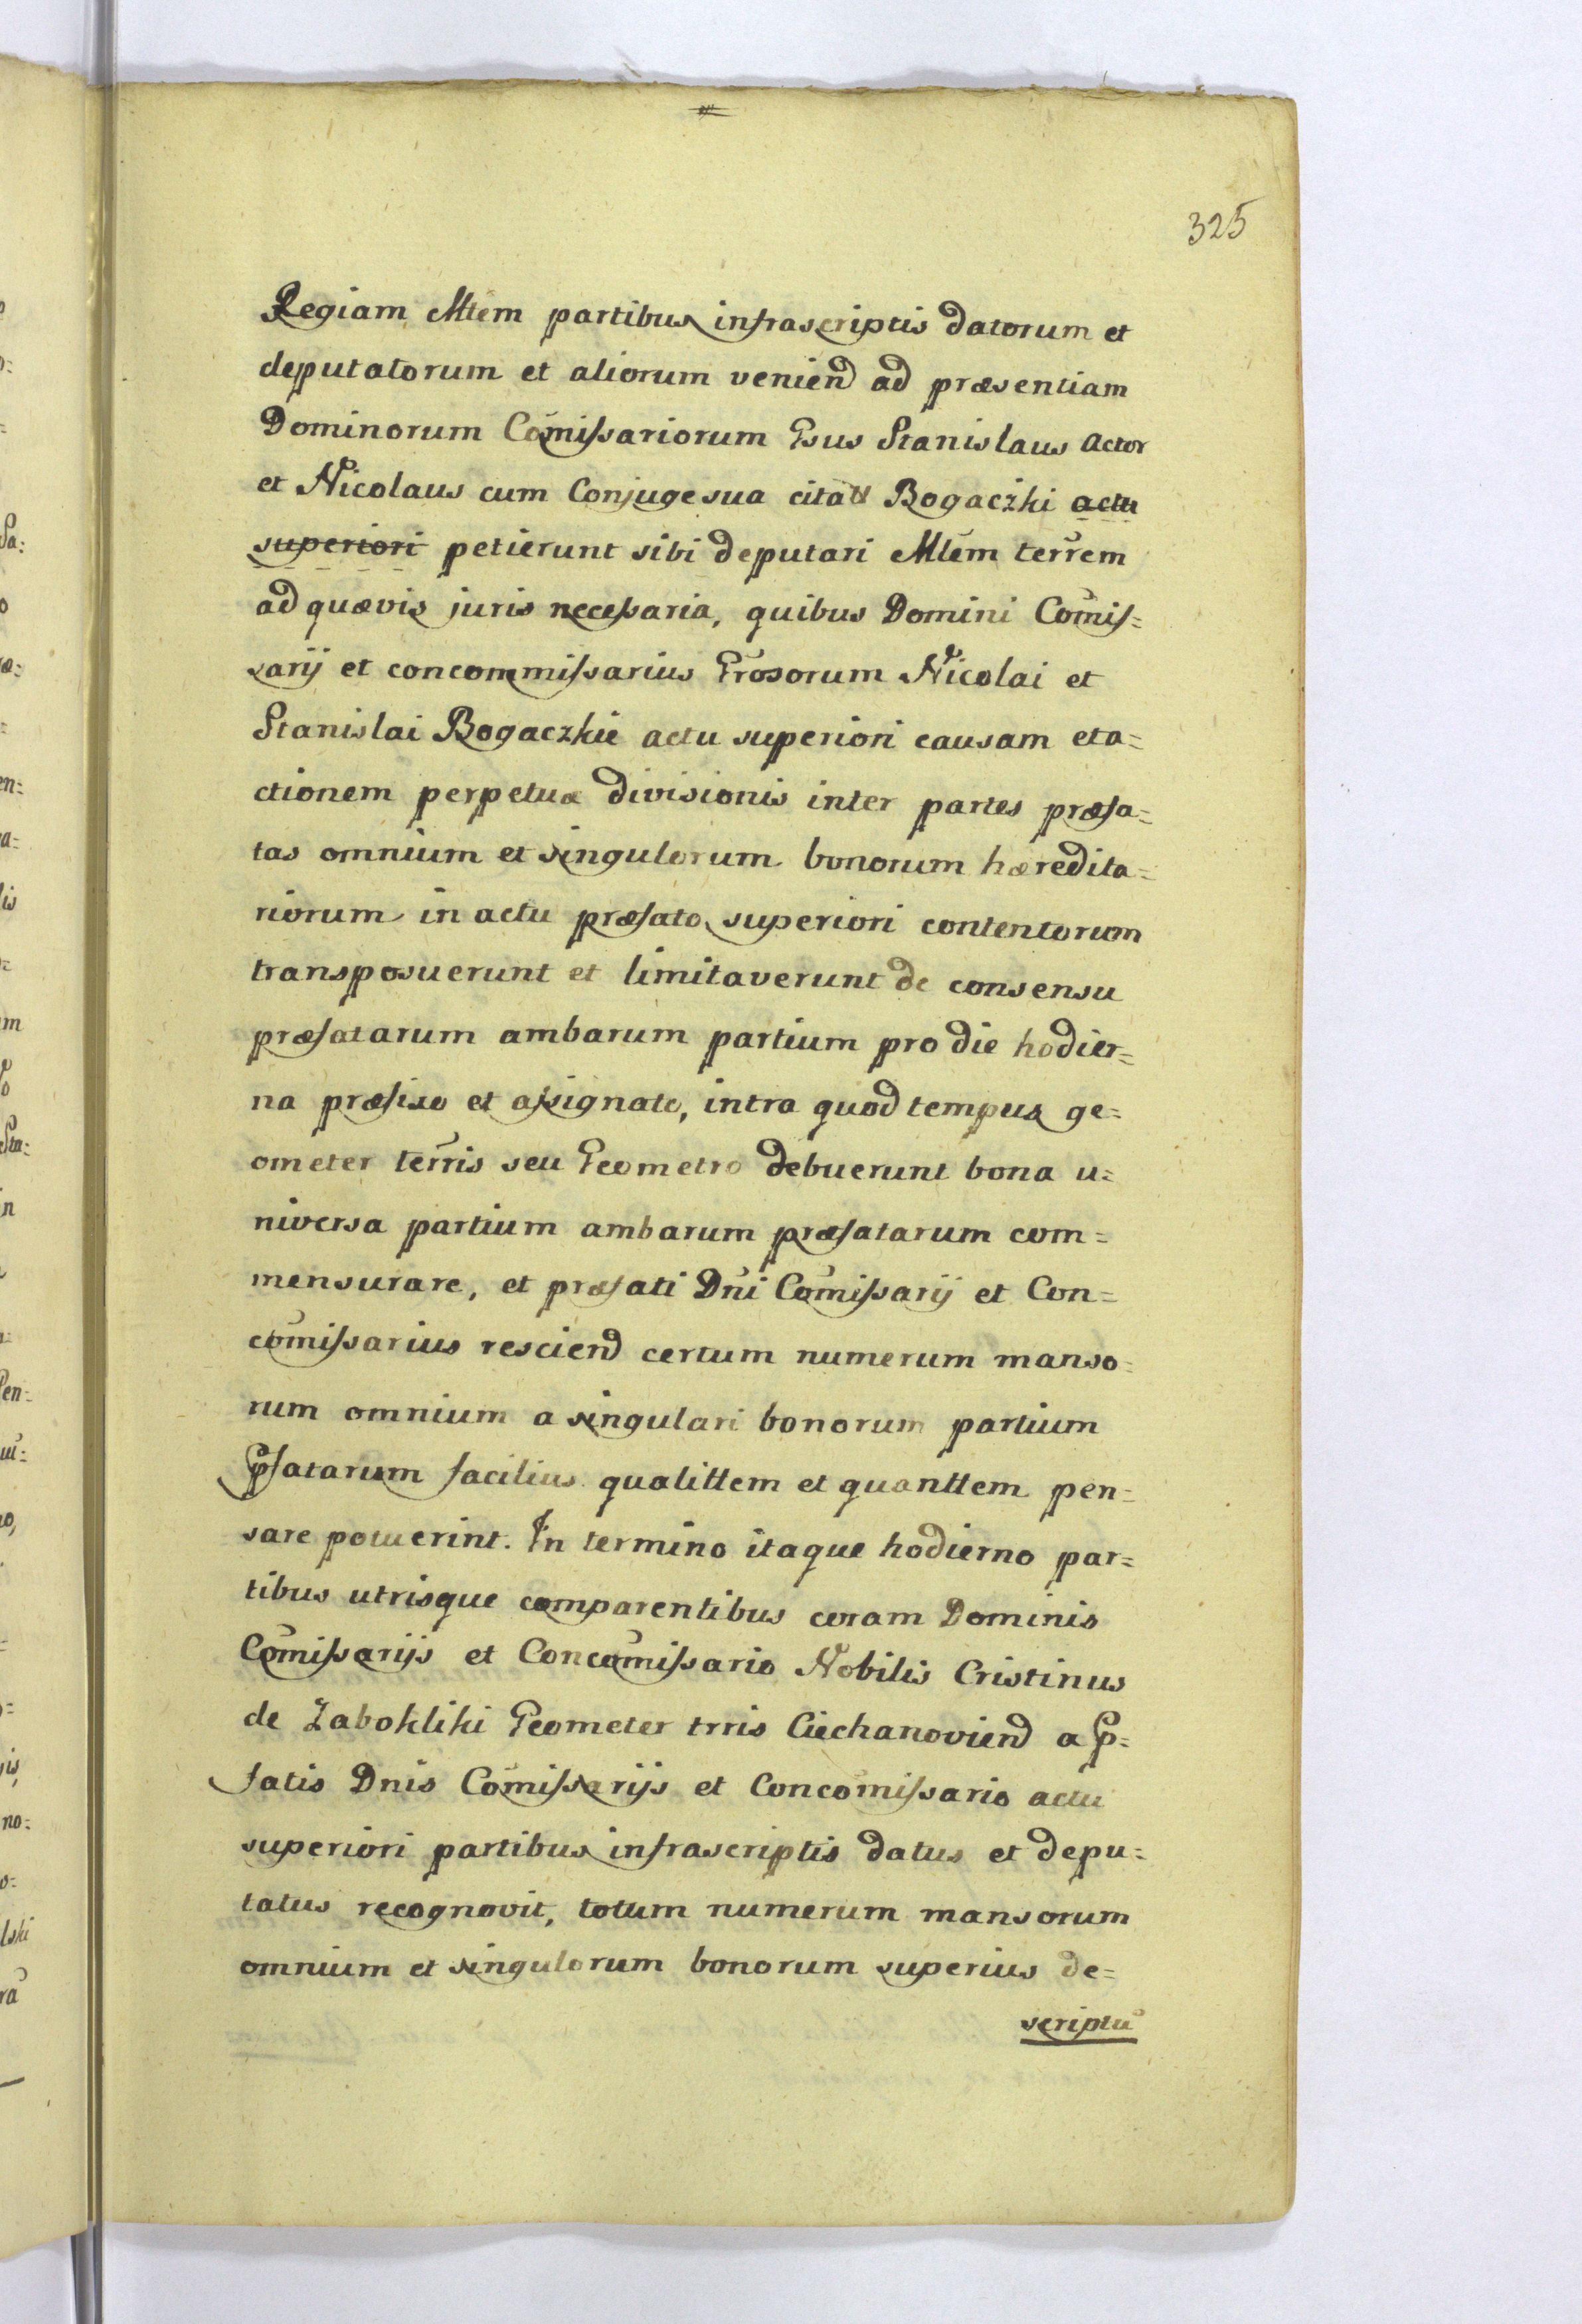 325
Regiam Mtem partibus infrascriptis datorum et
deputatorum et aliorum veniend ad præsentiam
Dominorum Com̃issariorum Gsus Stanislaus Actor
et Nicolaus cum Conjuge sua citati Bogaczki actu
superiori petierunt sibi deputari Mtem terrem
ad quævis juris necessaria, quibus Domini Com̃is=
sarij et concommissarius Grosorum Nicolai et
Stanislai Bogaczkie actu superiori causam et a=
ctionem perpetuæ divisionis inter partes præfa=
tas omnium et singulorum bonorum hæredita=
riorum in actu præfato superiori contentorum
transposuerunt et limitaverunt de consensu
præfatarum ambarum partium pro die hodier=
na præfixo et assignato, intra quod tempus ge=
ometer terris seu Geometro debuerunt bona u=
niversa partium ambarum præfatarum com=
mensurare, et præfati Dni Com̃issarij et Con=
com̃issarius resciend certum numerum manso=
rum omnium a singulari bonorum partium
pfatarum facilius qualittem et quanttem pen=
sare potuerint. In termino itaque hodierno par=
tibus utrisque comparentibus coram Dominis
Com̃issarijs et Concom̃issario Nobilis Cristinus
de Zabokliki Geometer trris Ciechanoviend a p=
fatis Dnis Com̃issarijs et Concom̃issario actu
superiori partibus infrascriptis datus et depu=
tatus recognovit, totum numerum mansorum
omnium et singulorum bonorum superius de=
scriptu